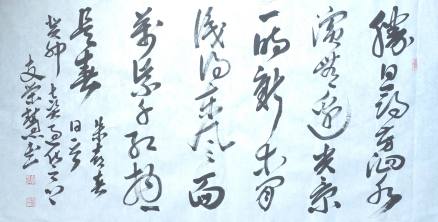 勝日尋芳泗水
濱無邊光景
一時新等閒
識得東風面
萬紫千紅總
是春 朱熹春
日
癸卯